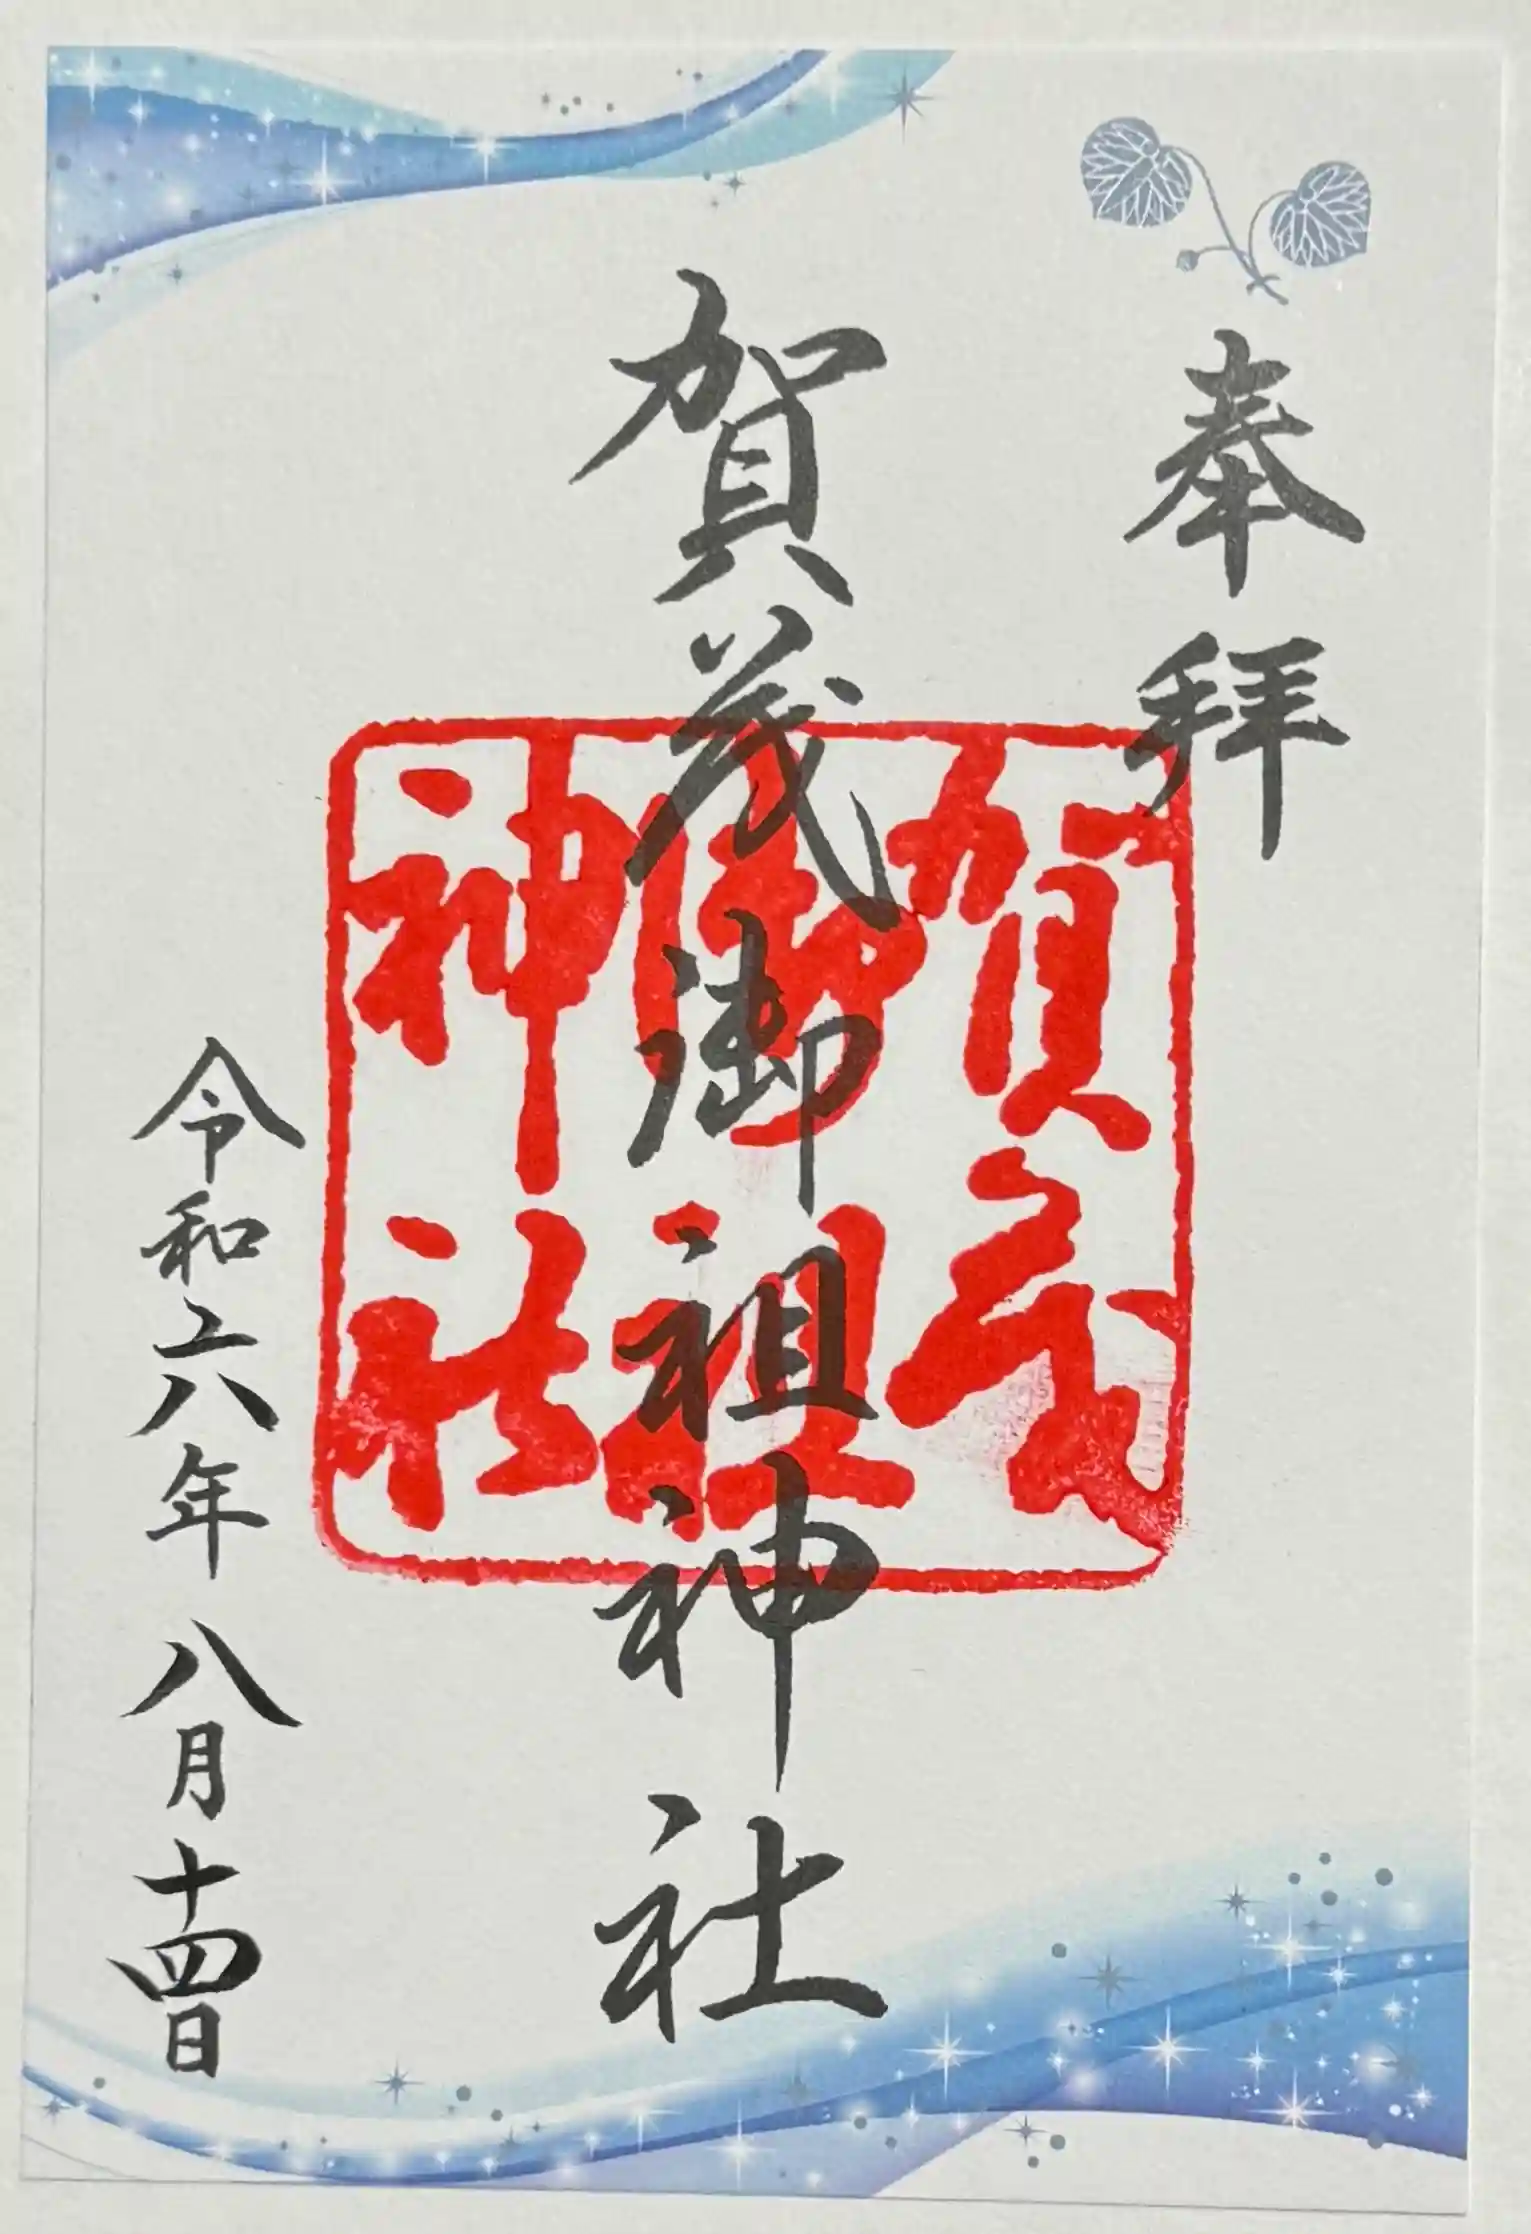 奉拝
賀茂御祖神社
賀茂
御祖
神社
令和六年 八月十四日